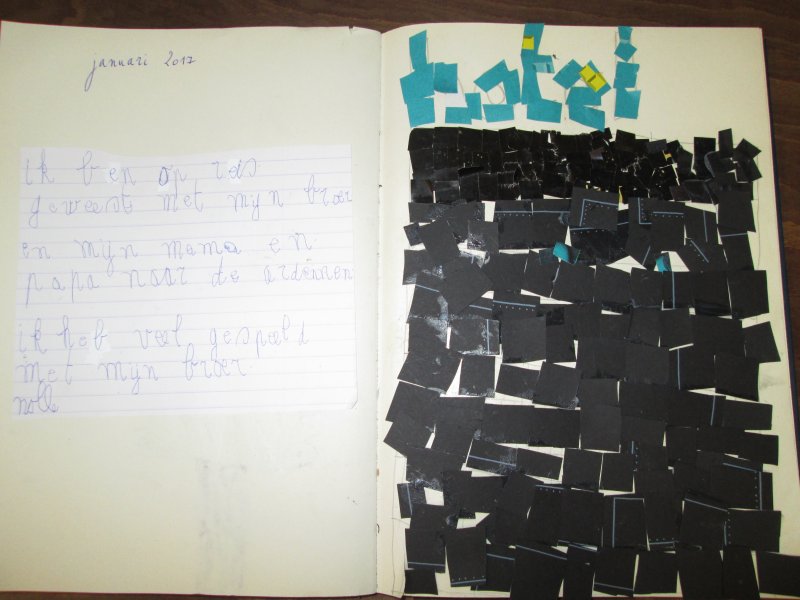 januari 2017
ik ben op ras
geweest met mijn broer
en mijn mama en
papa naar de ardènnen
ik heb veel gespeld
met mijn broer.
nolle